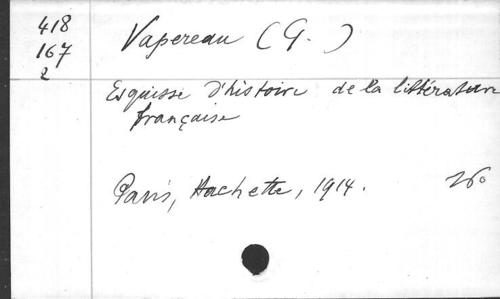 418
167
2
Vapereau (G.)
Esquisse d'histoire de la littérature
française
Paris, Hachette, 1914. 16°